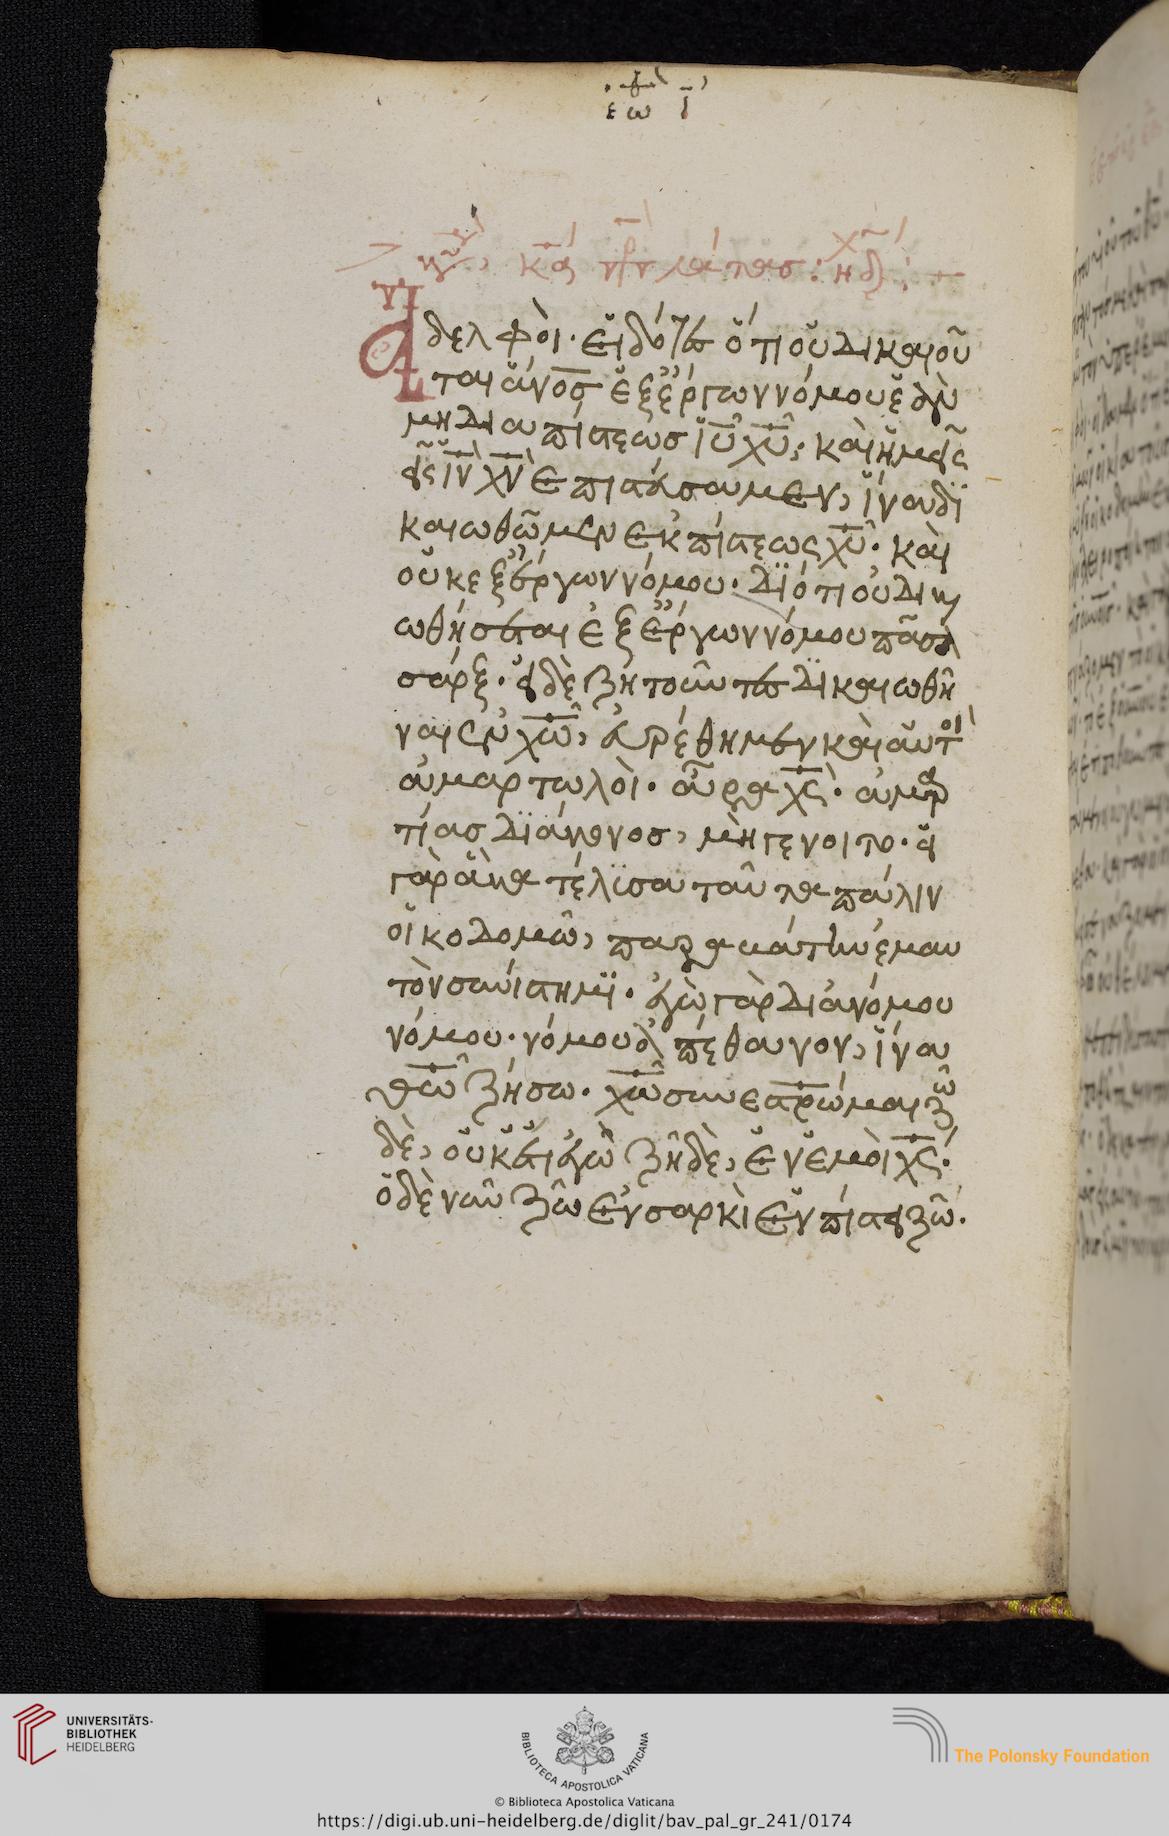 ἀδελφοὶ· εἰδότες ὅτι οὐ δικαιοῦ
ται ἄν̅ο̅ς̅ ἐξ ἔργων νόμου ἐὰν
μὴ δια πίστεως ἰ̅υ̅ χ̅υ̅· καὶ ἡμεῖς
εἰς ι̅ν̅ χ̅ν̅ ἐπιστεύσαμεν, ἵνα δϊ
καιωθῶμεν ἐκ πίστεως χ̅υ̅· καὶ
οὐκ ἐξ ἔργων νόμου· δϊότι οὐ δικ
ωθήσεται ἐξ ἔργων νόμου πᾶσα
σάρξ· εἰ δὲ ζητοῦντες δϊκαιωθῆ
ναι ἐν χ̅ω̅, εὑρέθημεν καὶ αὐτοὶ
ἁμαρτωλοὶ· ἆρα χ̅ς̅· ἁμαρ
τίας δϊάκονος, μὴ γένοιτο· εἰ
γὰρ ἃ κατέλϊσα ταῦτα πάλιν
οἰκοδομῶ, παραβάτην ἐμαυ
τὸν συνίστημϊ· ἐγὼ γὰρ διὰ νόμου
νόμου· νόμου ἀπέθανον, ἵνα
θ̅ω̅ ζήσω· χ̅ω̅ συνεσταρ̅ώμαι ζῶ
δὲ, οὐκέτι ἐγὼ ζῆ δὲ, ἐν ἐμοὶ χ̅ς̅·
ὃ δὲ νῦν ζῶ ἐν σαρκὶ ἐν πίστει ζῶ·
UNIVERSITÄTS-
BIBLIOTHEK
HEIDELBERG
BIBLIOTECA APOSTOLICA VATICANA
The Polonsky Foundation
© Biblioteca Apostolica Vaticana
https://digi.ub.uni-heidelberg.de/diglit/bav_pal_gr_241/0174